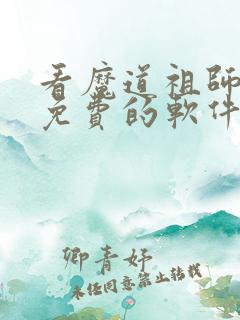 看魔道祖師
免費的軟件
卿青妤
未经同意禁止转载